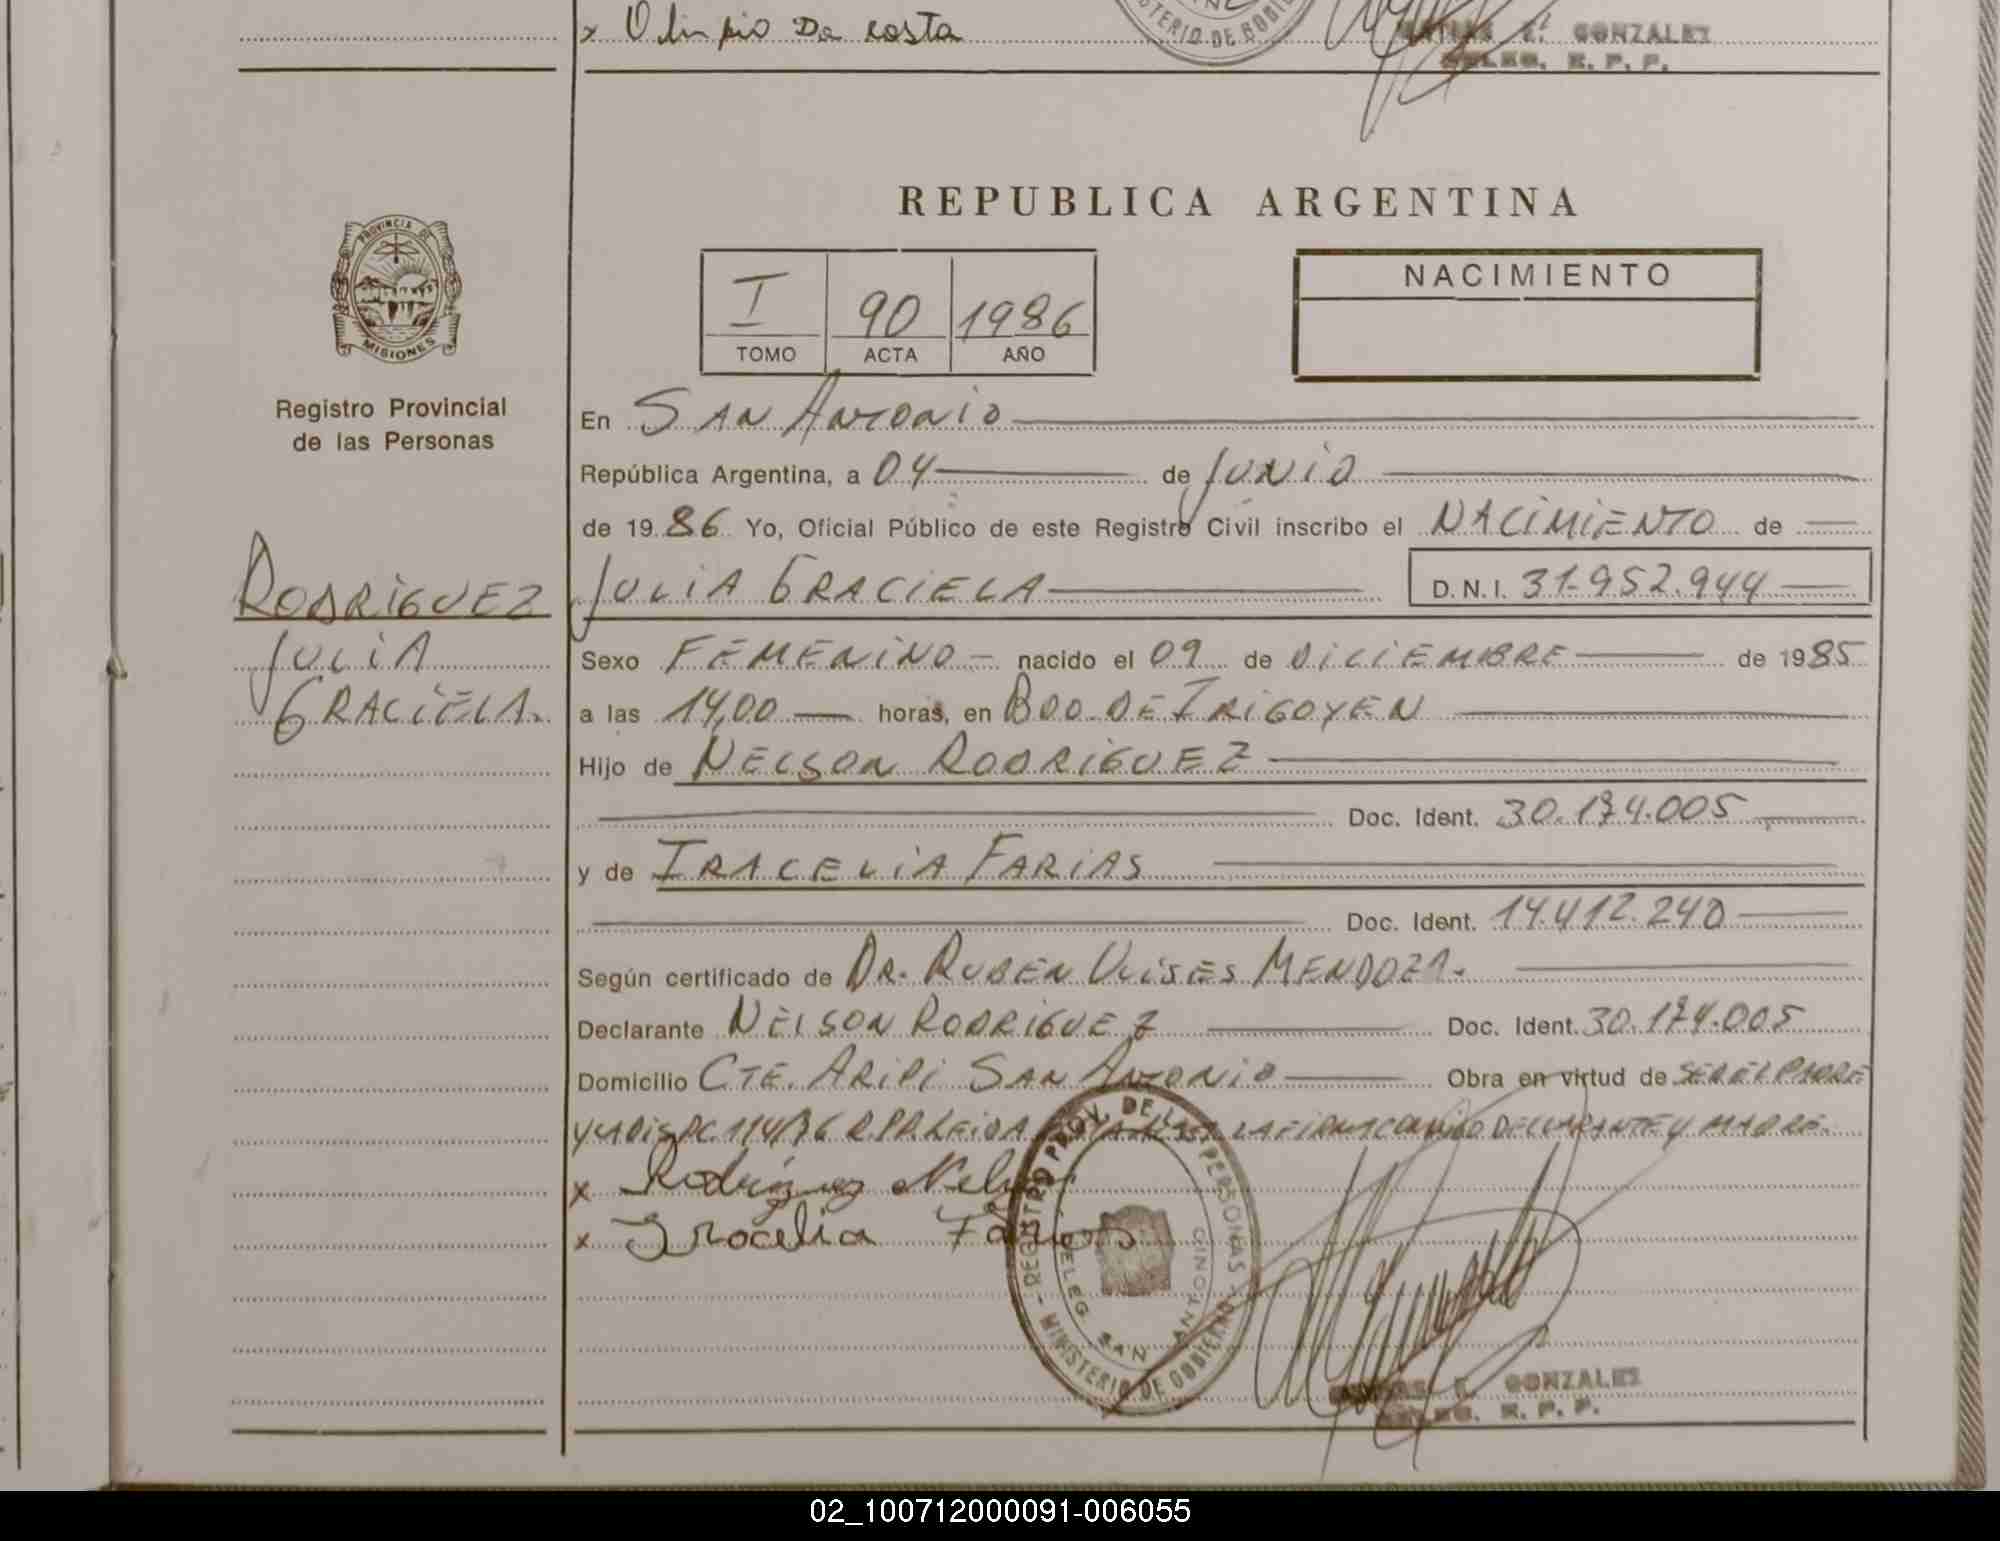 x Olinpio Da costa
MINISTERIO DE GOBI
E. GONZALEZ
DELEG. R. P. P.
PROVINCIA DE
MISIONES
Registro Provincial
de las Personas
RODRIGUEZ
JULIA
GRACIELA.
REPUBLICA ARGENTINA
I 90 1986
TOMO ACTA AÑO
NACIMIENTO
En SAN ANTONIO
República Argentina, a 04 de JUNIO
de 19 86 Yo, Oficial Público de este Registro Civil inscribo el NACIMIENTO de
JULIA GRACIELA D.N.I. 31.952.944
Sexo FEMENINO nacido el 09 de DICIEMBRE de 1985
a las 14,00 horas, en BDO. DE IRIGOYEN
Hijo de NELSON RODRIGUEZ
Doc. Ident. 30.174.005
y de IRACELIA FARIAS
Doc. Ident. 14.412.240
Según certificado de DR. RUBEN ULISES MENDOZA.
Declarante NELSON RODRIGUEZ Doc. Ident. 30.174.005
Domicilio CTE. ARIPI SAN ANTONIO Obra en virtud de SER EL PADRE
Y LA DISPC. 114/76 R.P.P. LEIDA LA FIRMA CONMIGO DECLARANTE Y MADRE.
x Rodriguez Nelson
x Iracelia Farias
REGISTRO PROV. DE LAS PERSONAS
DELEG. SAN ANTONIO
MINISTERIO DE GOBIERNO
E. GONZALEZ
DELEG. R. P. P.
02_100712000091-006055